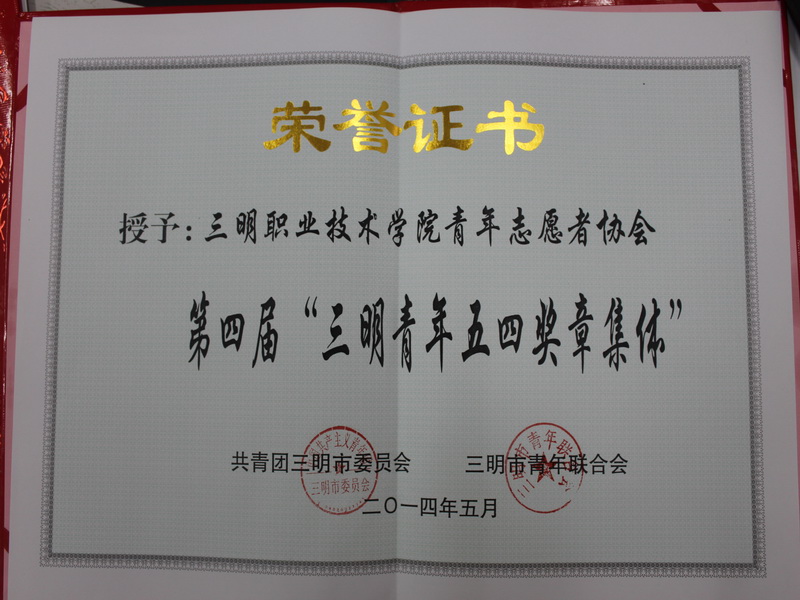 荣誉证书
授予：三明职业技术学院青年志愿者协会
第四届“三明青年五四奖章集体”
共青团三明市委员会 三明市青年联合会
二〇一四年五月
三明市委员会